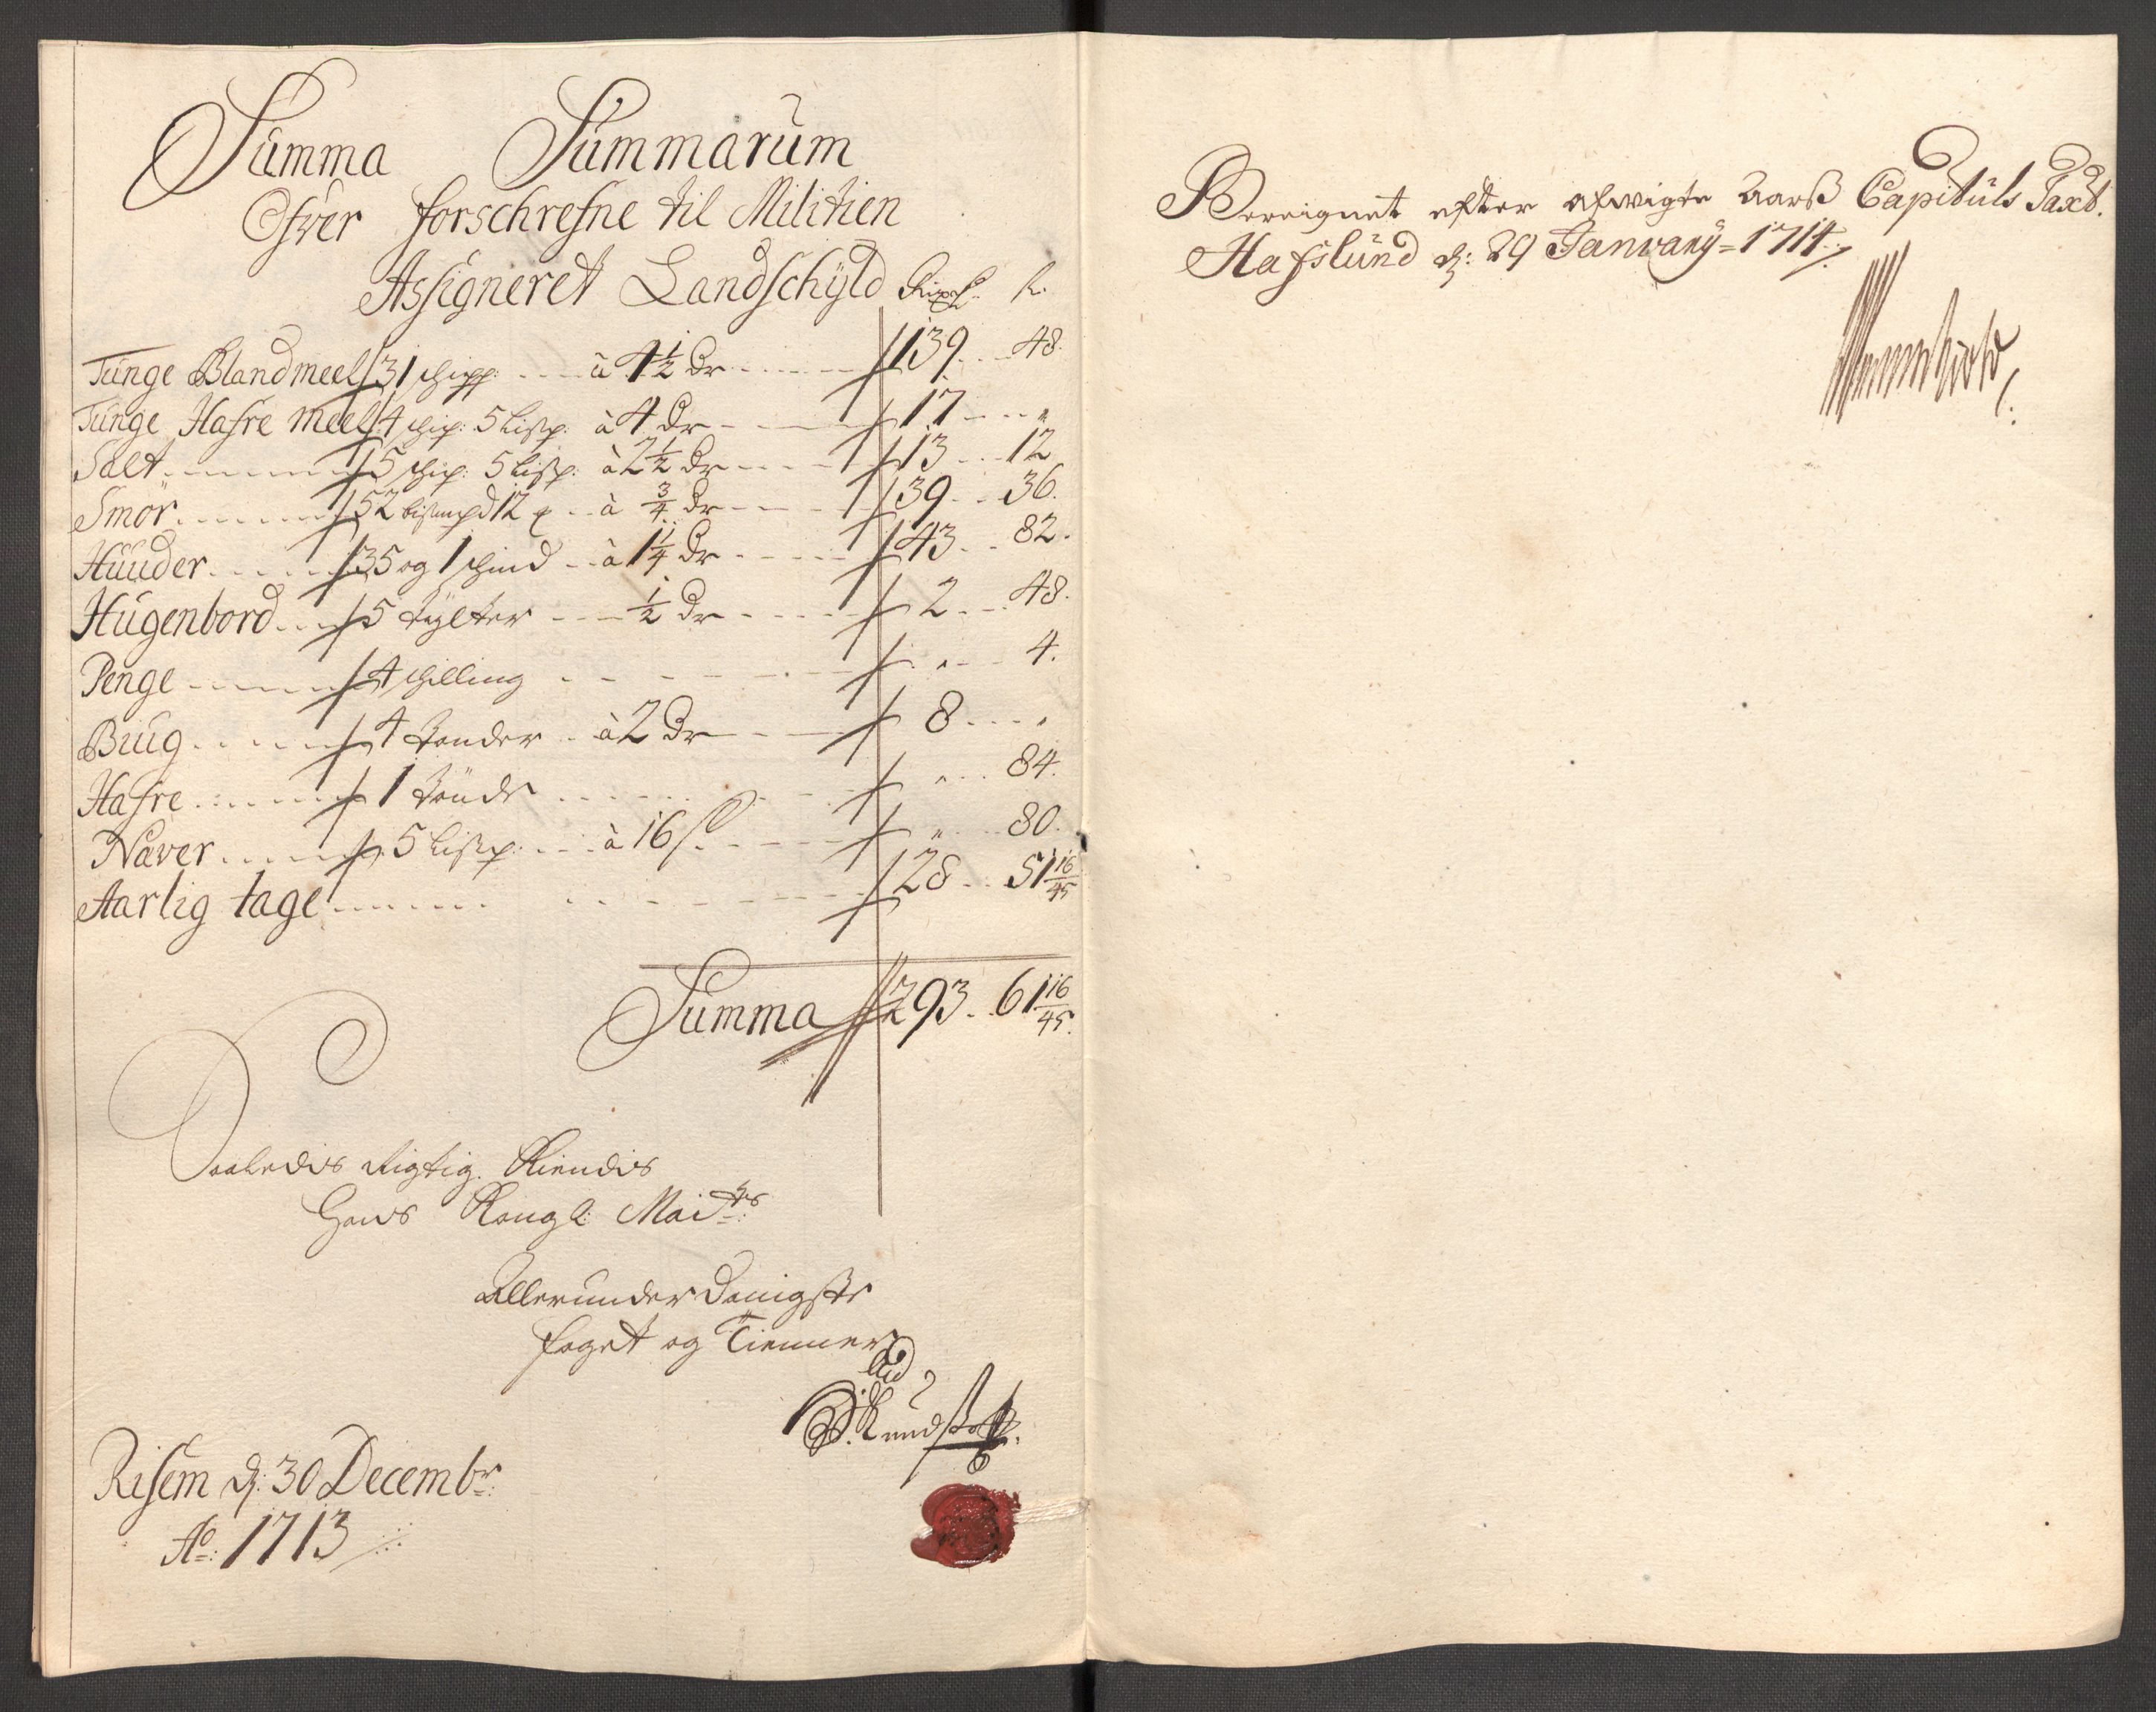 Summa Summarum
Ofver forschrefne til Militien
Assigneret Landschyld Rixd. s.
Tunge Blandmeel 31 schipp: à 4½ Dr 139 48.
Tunge Hafre meel 4 schip: 5 Lisp: à 4 Dr 17 "
Salt 5 schip: 5 Lisp: à 2½ Dr 13 12
Smör 52 bismpd 12 à ¾ Dr 39 36.
Huuder 35 og 1 schind à 1¼ Dr 43 82.
Hugenbord 5 tylter ½ Dr 2 48.
Penge 4 schilling " 4.
Biug 4 tønder à 2 Dr 8 "
Hafre 1 tønde " 84.
Næver 5 Lisp: à 16 s " 80.
Aarlig tage 28 51 16/45
Summa 293. 61 16/45.
Saaledis Rigtig Kiendis
Hans Kongl: Mai:ts
Allerunderdanigste
foget og Tienner
Risem d: 30 Decembr:
Ao: 1713
Bereignet efter afvigte Aarß Capituls Taxt.
Hafslund d: 29 January 1714